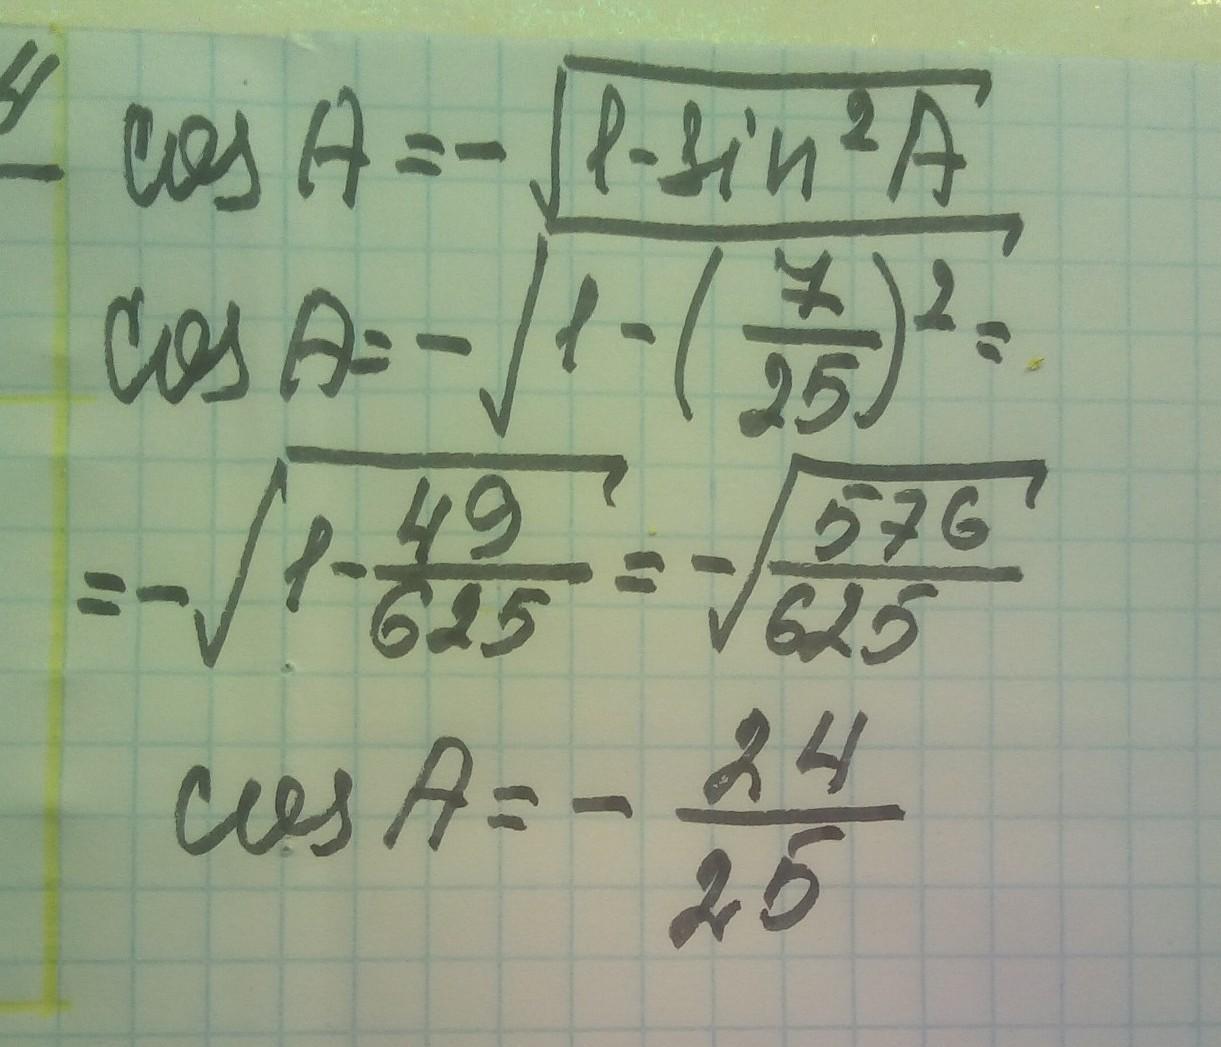 cos A = - √(1 - sin² A)
cos A = - √(1 - (7/25)²) =
= - √(1 - 49/625) = - √(576/625)
cos A = - 24/25